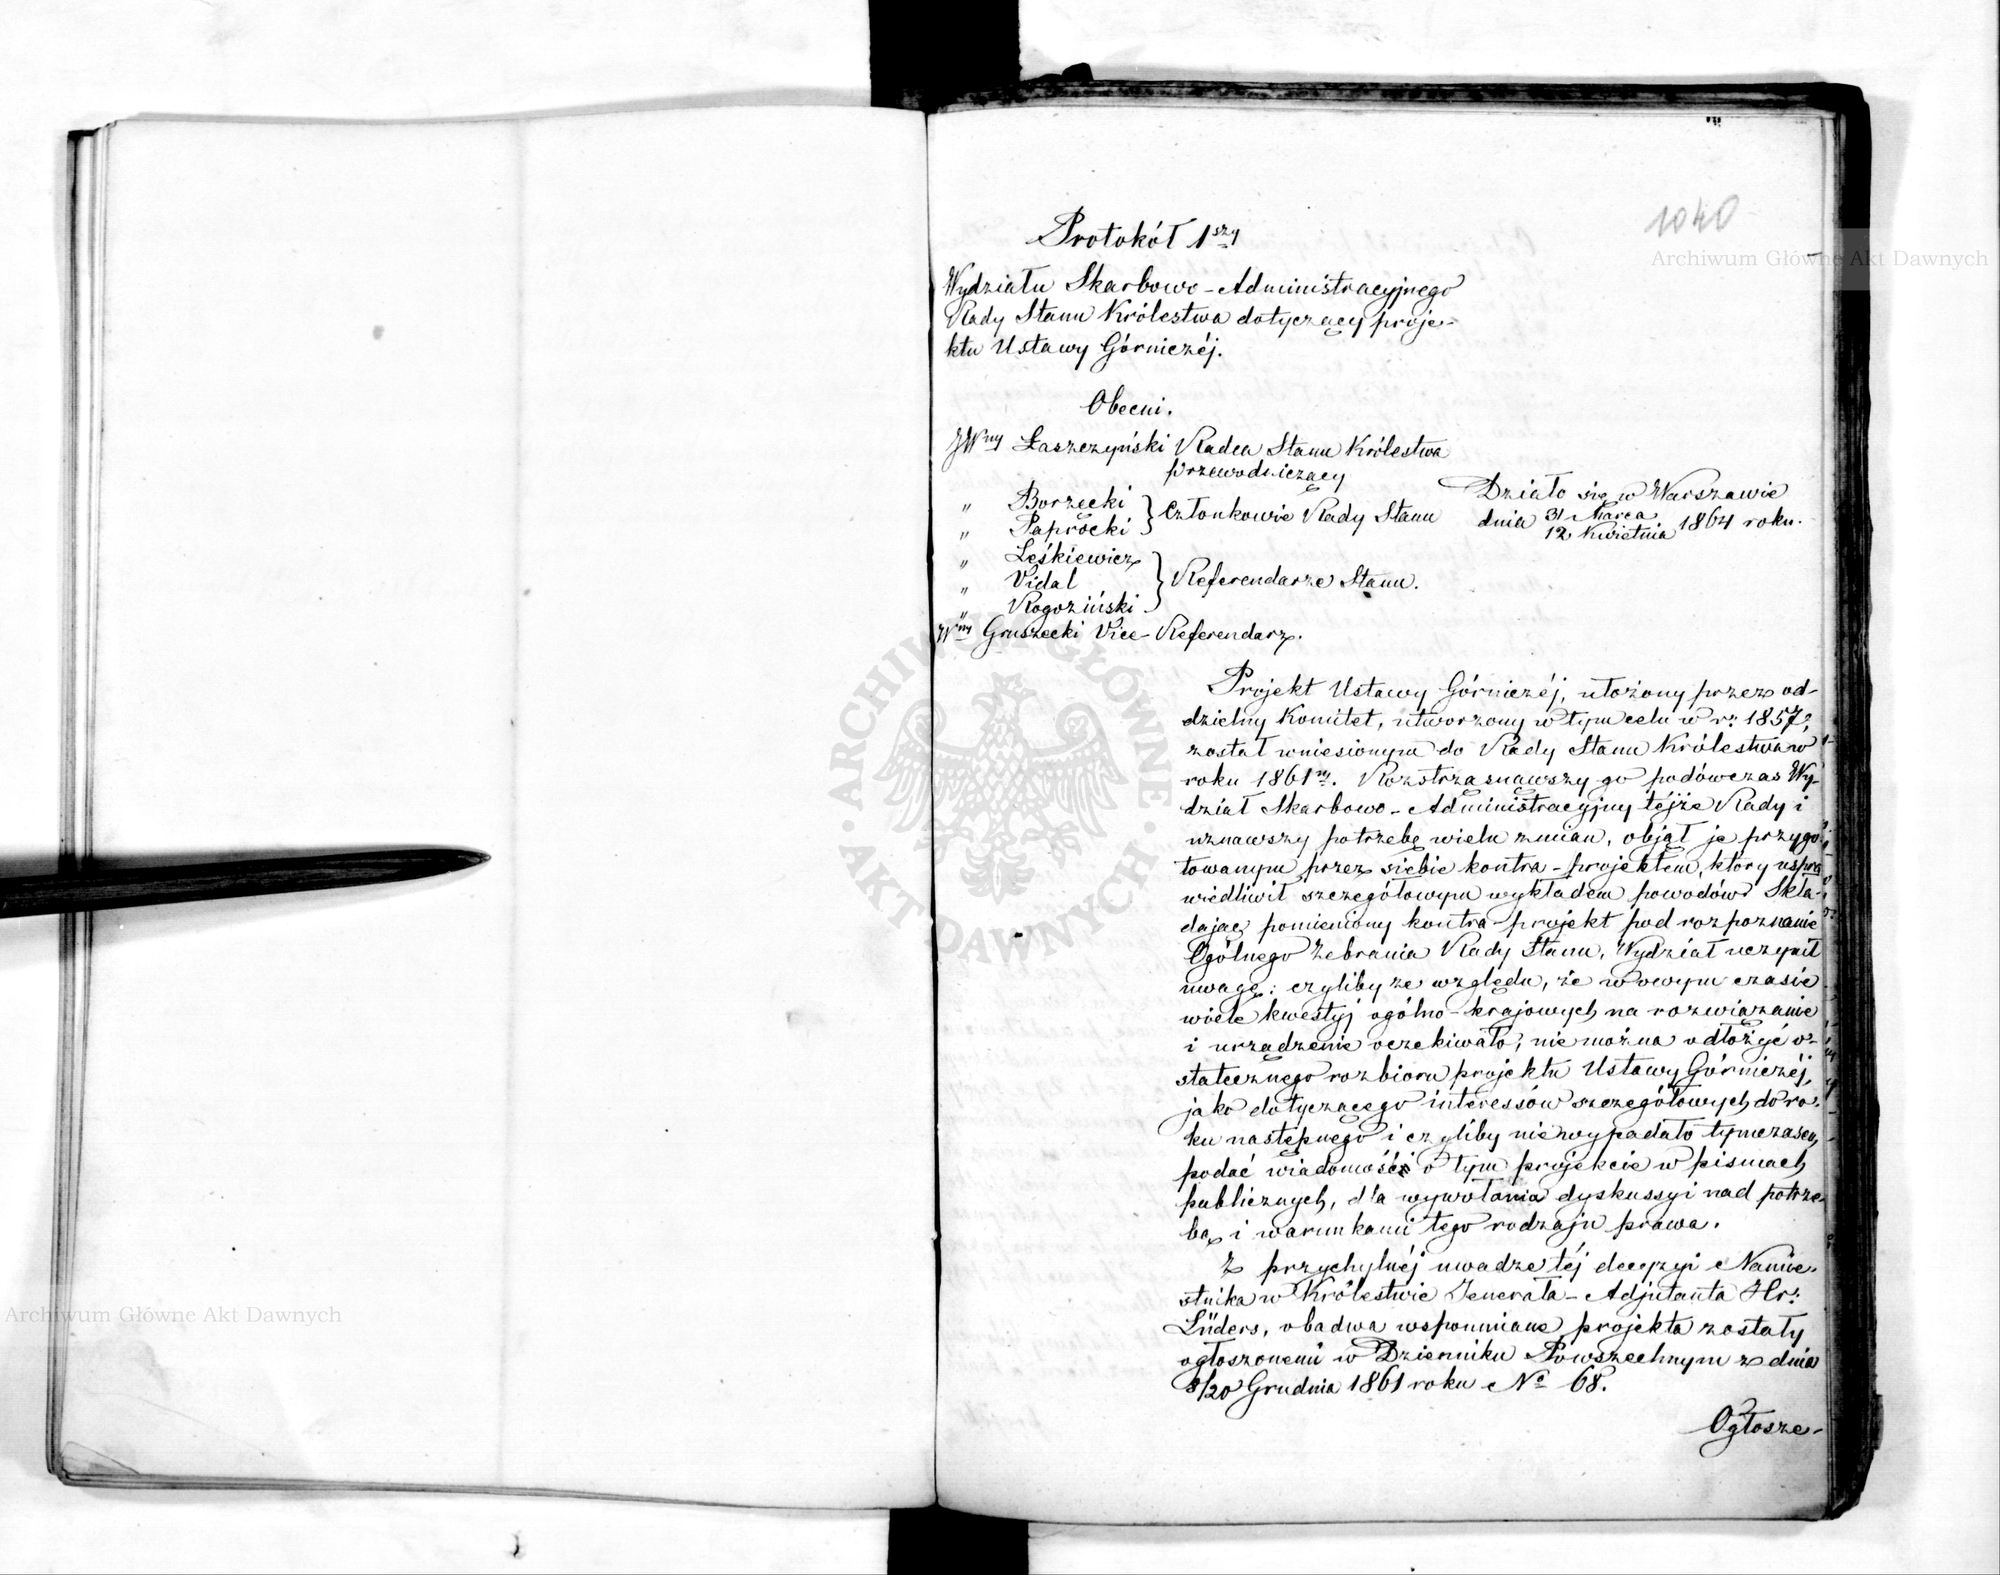 1040
Protokół 1szy
Wydziału Skarbowo-Administracyjnego
Rady Stanu Królestwa dotyczący proje-
ktu Ustawy Górniczéj.
Obecni.
JWny Łaszczyński Radca Stanu Królestwa
przewodniczący
" Borzęcki
" Paprocki } Członkowie Rady Stanu
" Leśkiewicz
" Vidal } Referendarze Stanu.
" Rogoziński
Wny Gruszecki Vice-Referendarz.
Działo się w Warszawie
dnia 31 Marca / 12 Kwietnia 1864 roku.
Projekt Ustawy Górniczéj, ułożony przez od-
dzielny Komitet, utworzony w tym celu w r: 1857,
został wniesionym do Rady Stanu Królestwa w
roku 1861m. Rozstrząsnąwszy go podówczas Wy-
dział Skarbowo-Administracyjny tejże Rady i
uznawszy potrzebę wielu zmian, objął je przygo
towanym przez siebie kontra-projektem, który uspra
wiedliwił szczegółowym wykładem powodów. Skła-
dając pomieniony kontra-projekt pod rozpoznanie
Ogólnego Zebrania Rady Stanu, Wydział uczynił
uwagę: czyliby ze względu, że w owym czasie
wiele kwestyj ogólno-krajowych na rozwiązanie
i urządzenie oczekiwało, nie można odłożyć o-
statecznego rozbioru projektu Ustawy Górniczéj,
jako dotyczącego interessów szczegółowych do ro-
ku następnego i czyliby nie wypadało tymczasem
podać wiadomość o tym projekcie w pismach
publicznych, dla wywołania dyskussyi nad potrze-
bą i warunkami tego rodzaju prawa.
Z przychylnéj uwadze téj decyzyi Namie-
stnika w Królestwie Jenerała-Adjutanta Hr:
Lüders, obadwa wspomniane projekta zostały
ogłoszonemi w Dzienniku Powszechnym z dnia
8/20 Grudnia 1861 roku No 68.
Ogłosze-
Archiwum Główne Akt Dawnych
Archiwum Główne Akt Dawnych
ARCHIWUM GŁÓWNE · AKT DAWNYCH ·